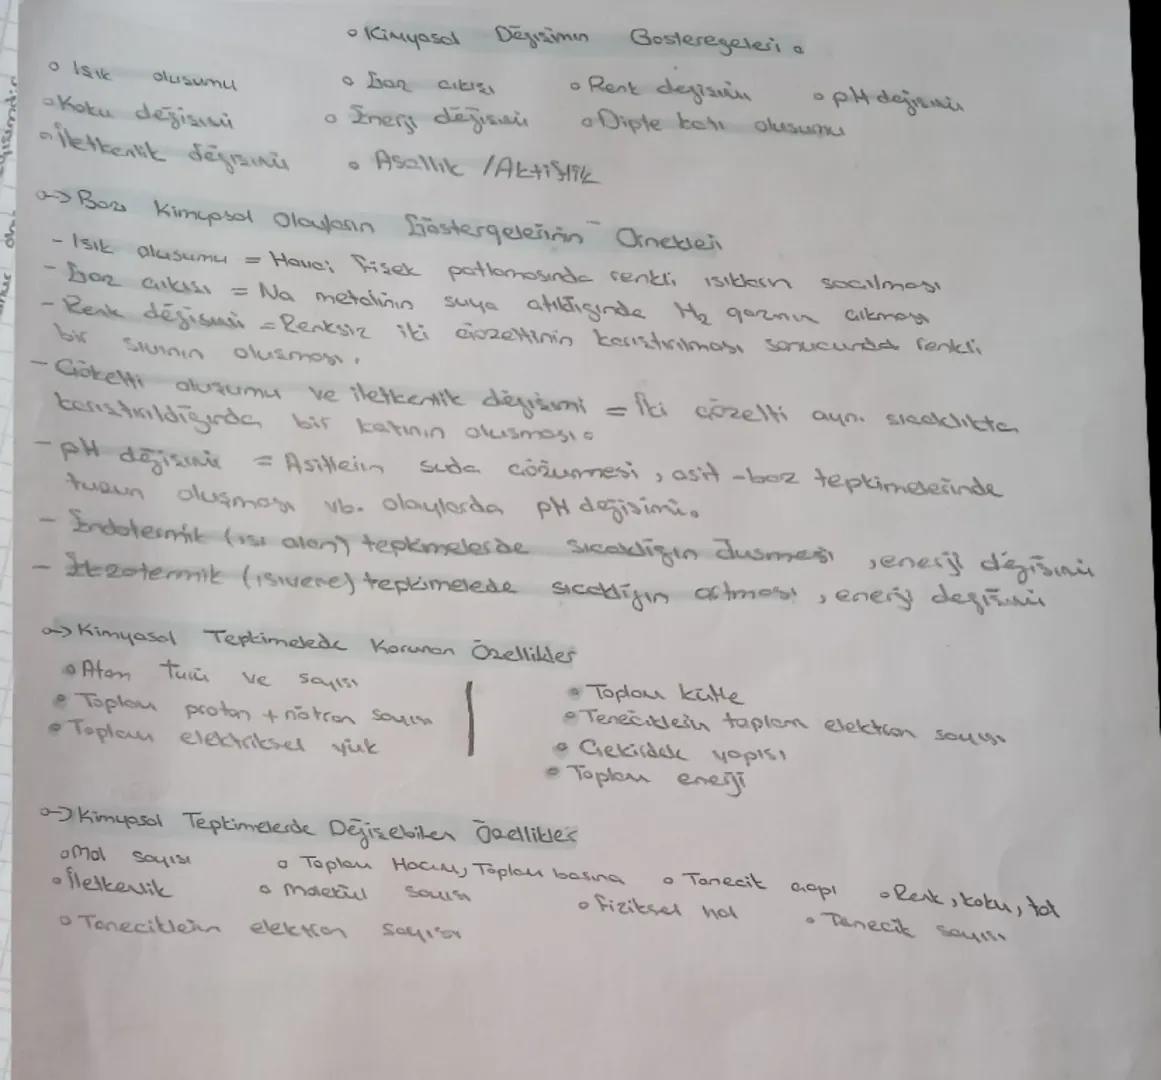 Kimyasal Değişimin Göstergeleri
Işık oluşumu
Gaz çıkışı
Renk değişimi
pH değişimi
Koku değişimi
Enerji değişimi
Dipte katı oluşumu
İletkenlik değişimi
Asallık / Aktiflik
-> Bazı Kimyasal Olayların Göstergelerinin Örnekleri
- Işık oluşumu = Havai fişek patlamasında renkli ışıkların saçılması
- Gaz çıkışı = Na metalinin suya atıldığında H₂ gazının çıkması
- Renk değişimi = Renksiz iki çözeltinin karıştırılması sonucunda renkli
bir sıvının oluşması.
- Çökelti oluşumu ve iletkenlik değişimi = İki çözelti aynı sıcaklıkta
karıştırıldığında bir katının oluşması.
- pH değişimi = Asitlerin suda çözünmesi, asit-baz tepkimelerinde
tuzun oluşması vb. olaylarda pH değişimi.
- Endotermik (ısı alan) tepkimelerde sıcaklığın düşmesi, enerji değişimi
- Ekzotermik (ısıveren) tepkimelerde sıcaklığın artması, enerji değişimi
-> Kimyasal Tepkimelerde Korunan Özellikler
Atom türü ve sayısı
Toplam proton + nötron sayısı
Toplam elektriksel yük
Toplam kütle
Taneciklerin toplam elektron sayısı
Çekirdek yapısı
Toplam enerji
-> Kimyasal Tepkimelerde Değişebilen Özellikler
Mol sayısı
Toplam Hacim, Toplam basınç
Tanecik çapı
Renk, koku, tat
İletkenlik
Molekül sayısı
Fiziksel hal
Tanecik sayısı
Taneciklerin elektron sayısı